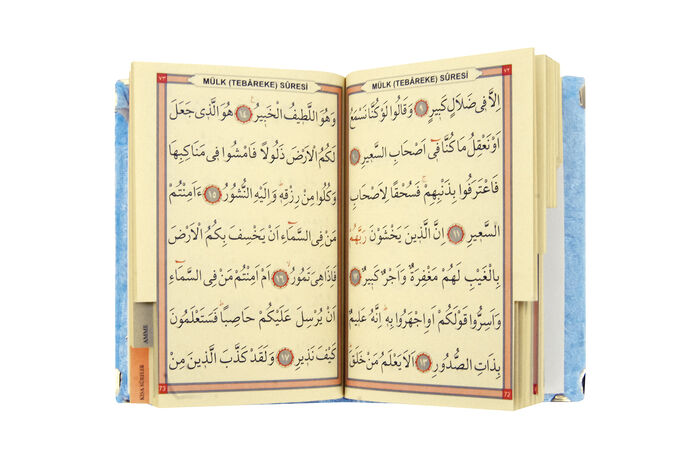 ٧٢
MÜLK (TEBÂREKE) SÛRESİ
اِلَّا فِى ضَلَالٍ كَبِيرٍ ﴿٩﴾ وَقَالُوا لَوْ كُنَّا نَسْمَعُ
اَوْ نَعْقِلُ مَا كُنَّا فِٓى اَصْحَابِ السَّعِيرِ ﴿١٠﴾
فَاعْتَرَفُوا بِذَنْبِهِمْ فَسُحْقًا لِاَصْحَابِ
السَّعِيرِ ﴿١١﴾ اِنَّ الَّذِينَ يَخْشَوْنَ رَبَّهُمْ
بِالْغَيْبِ لَهُمْ مَغْفِرَةٌ وَاَجْرٌ كَبِيرٌ ﴿١٢﴾
وَاَسِرُّوا قَوْلَكُمْ اَوِ اجْهَرُوا بِهِ اِنَّهُ عَلِيمٌ
بِذَاتِ الصُّدُورِ ﴿١٣﴾ اَلَا يَعْلَمُ مَنْ خَلَقَ
72
٧٣
MÜLK (TEBÂREKE) SÛRESİ
وَهُوَ اللَّطِيفُ الْخَبِيرُ ﴿١٤﴾ هُوَ الَّذِى جَعَلَ
لَكُمُ الْاَرْضَ ذَلُولًا فَامْشُوا فِى مَنَاكِبِهَا
وَكُلُوا مِنْ رِزْقِهِ وَاِلَيْهِ النُّشُورُ ﴿١٥﴾ ءَاَمِنْتُمْ
مَنْ فِى السَّمَٓاءِ اَنْ يَخْسِفَ بِكُمُ الْاَرْضَ
فَاِذَا هِىَ تَمُورُ ﴿١٦﴾ اَمْ اَمِنْتُمْ مَنْ فِى السَّمَٓاءِ
اَنْ يُرْسِلَ عَلَيْكُمْ حَاصِبًا فَسَتَعْلَمُونَ
كَيْفَ نَذِيرِ ﴿١٧﴾ وَلَقَدْ كَذَّبَ الَّذِينَ مِنْ
73
AMME
KISA SÛRELER